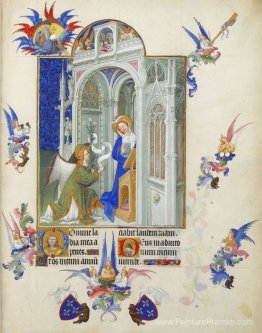 Omine la
bia mea a
peries.
os meum annū
ciabit laudem tuam.
Eus in adiuto
rium meum
intende.
www.PeinturePremier.com